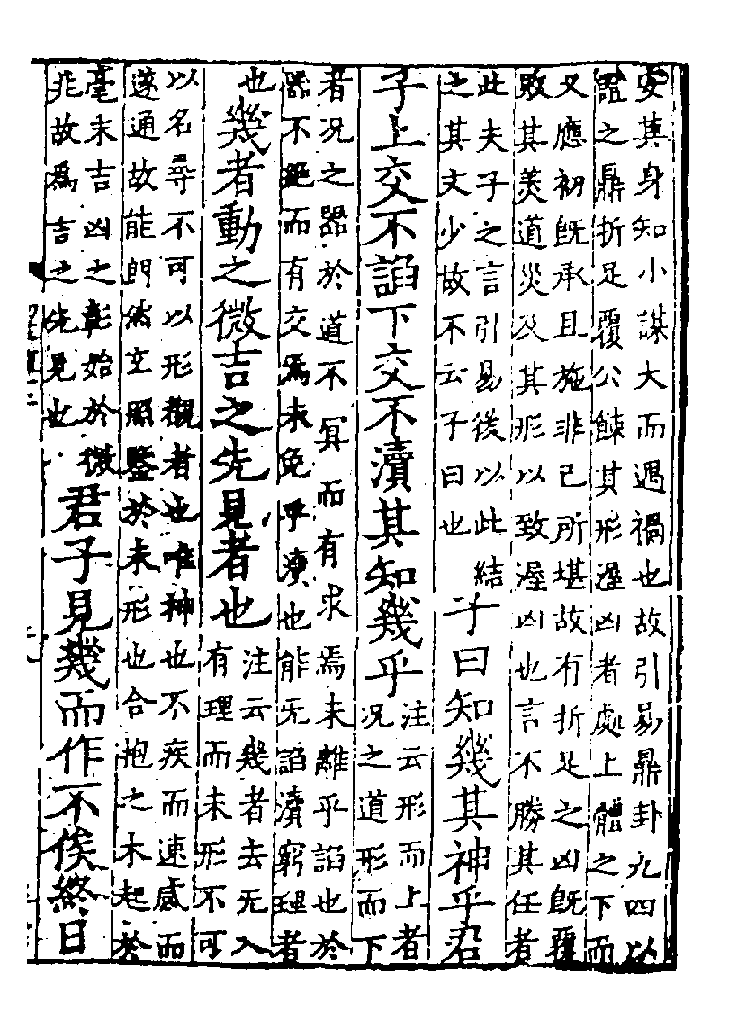 安其身知小謀大而遇禍也故引易鼎卦九四以
證之鼎折足覆公餗其形渥凶者處上體之下而
又應初既承且施非己所堪故有折足之凶既覆
敗其美道災及其形以致渥凶也言不勝其任者
此夫子之言引易後以此結
之其文少故不云子曰也
子曰知幾其神乎君
子上交不諂下交不瀆其知幾乎
注云形而上者
況之道形而下
者況之器於道不冥而有求焉未離乎諂也於
器不絕而有交焉未免乎瀆也能无諂瀆窮理者
也
幾者動之微吉之先見者也
注云幾者去无入
有理而未形不可
以名尋不可以形觀者也唯神也不疾而速感而
遂通故能朗然玄照鑒於未形也合抱之木起於
毫末吉凶之彰始於微
兆故為吉之先見也
君子見幾而作不俟終日